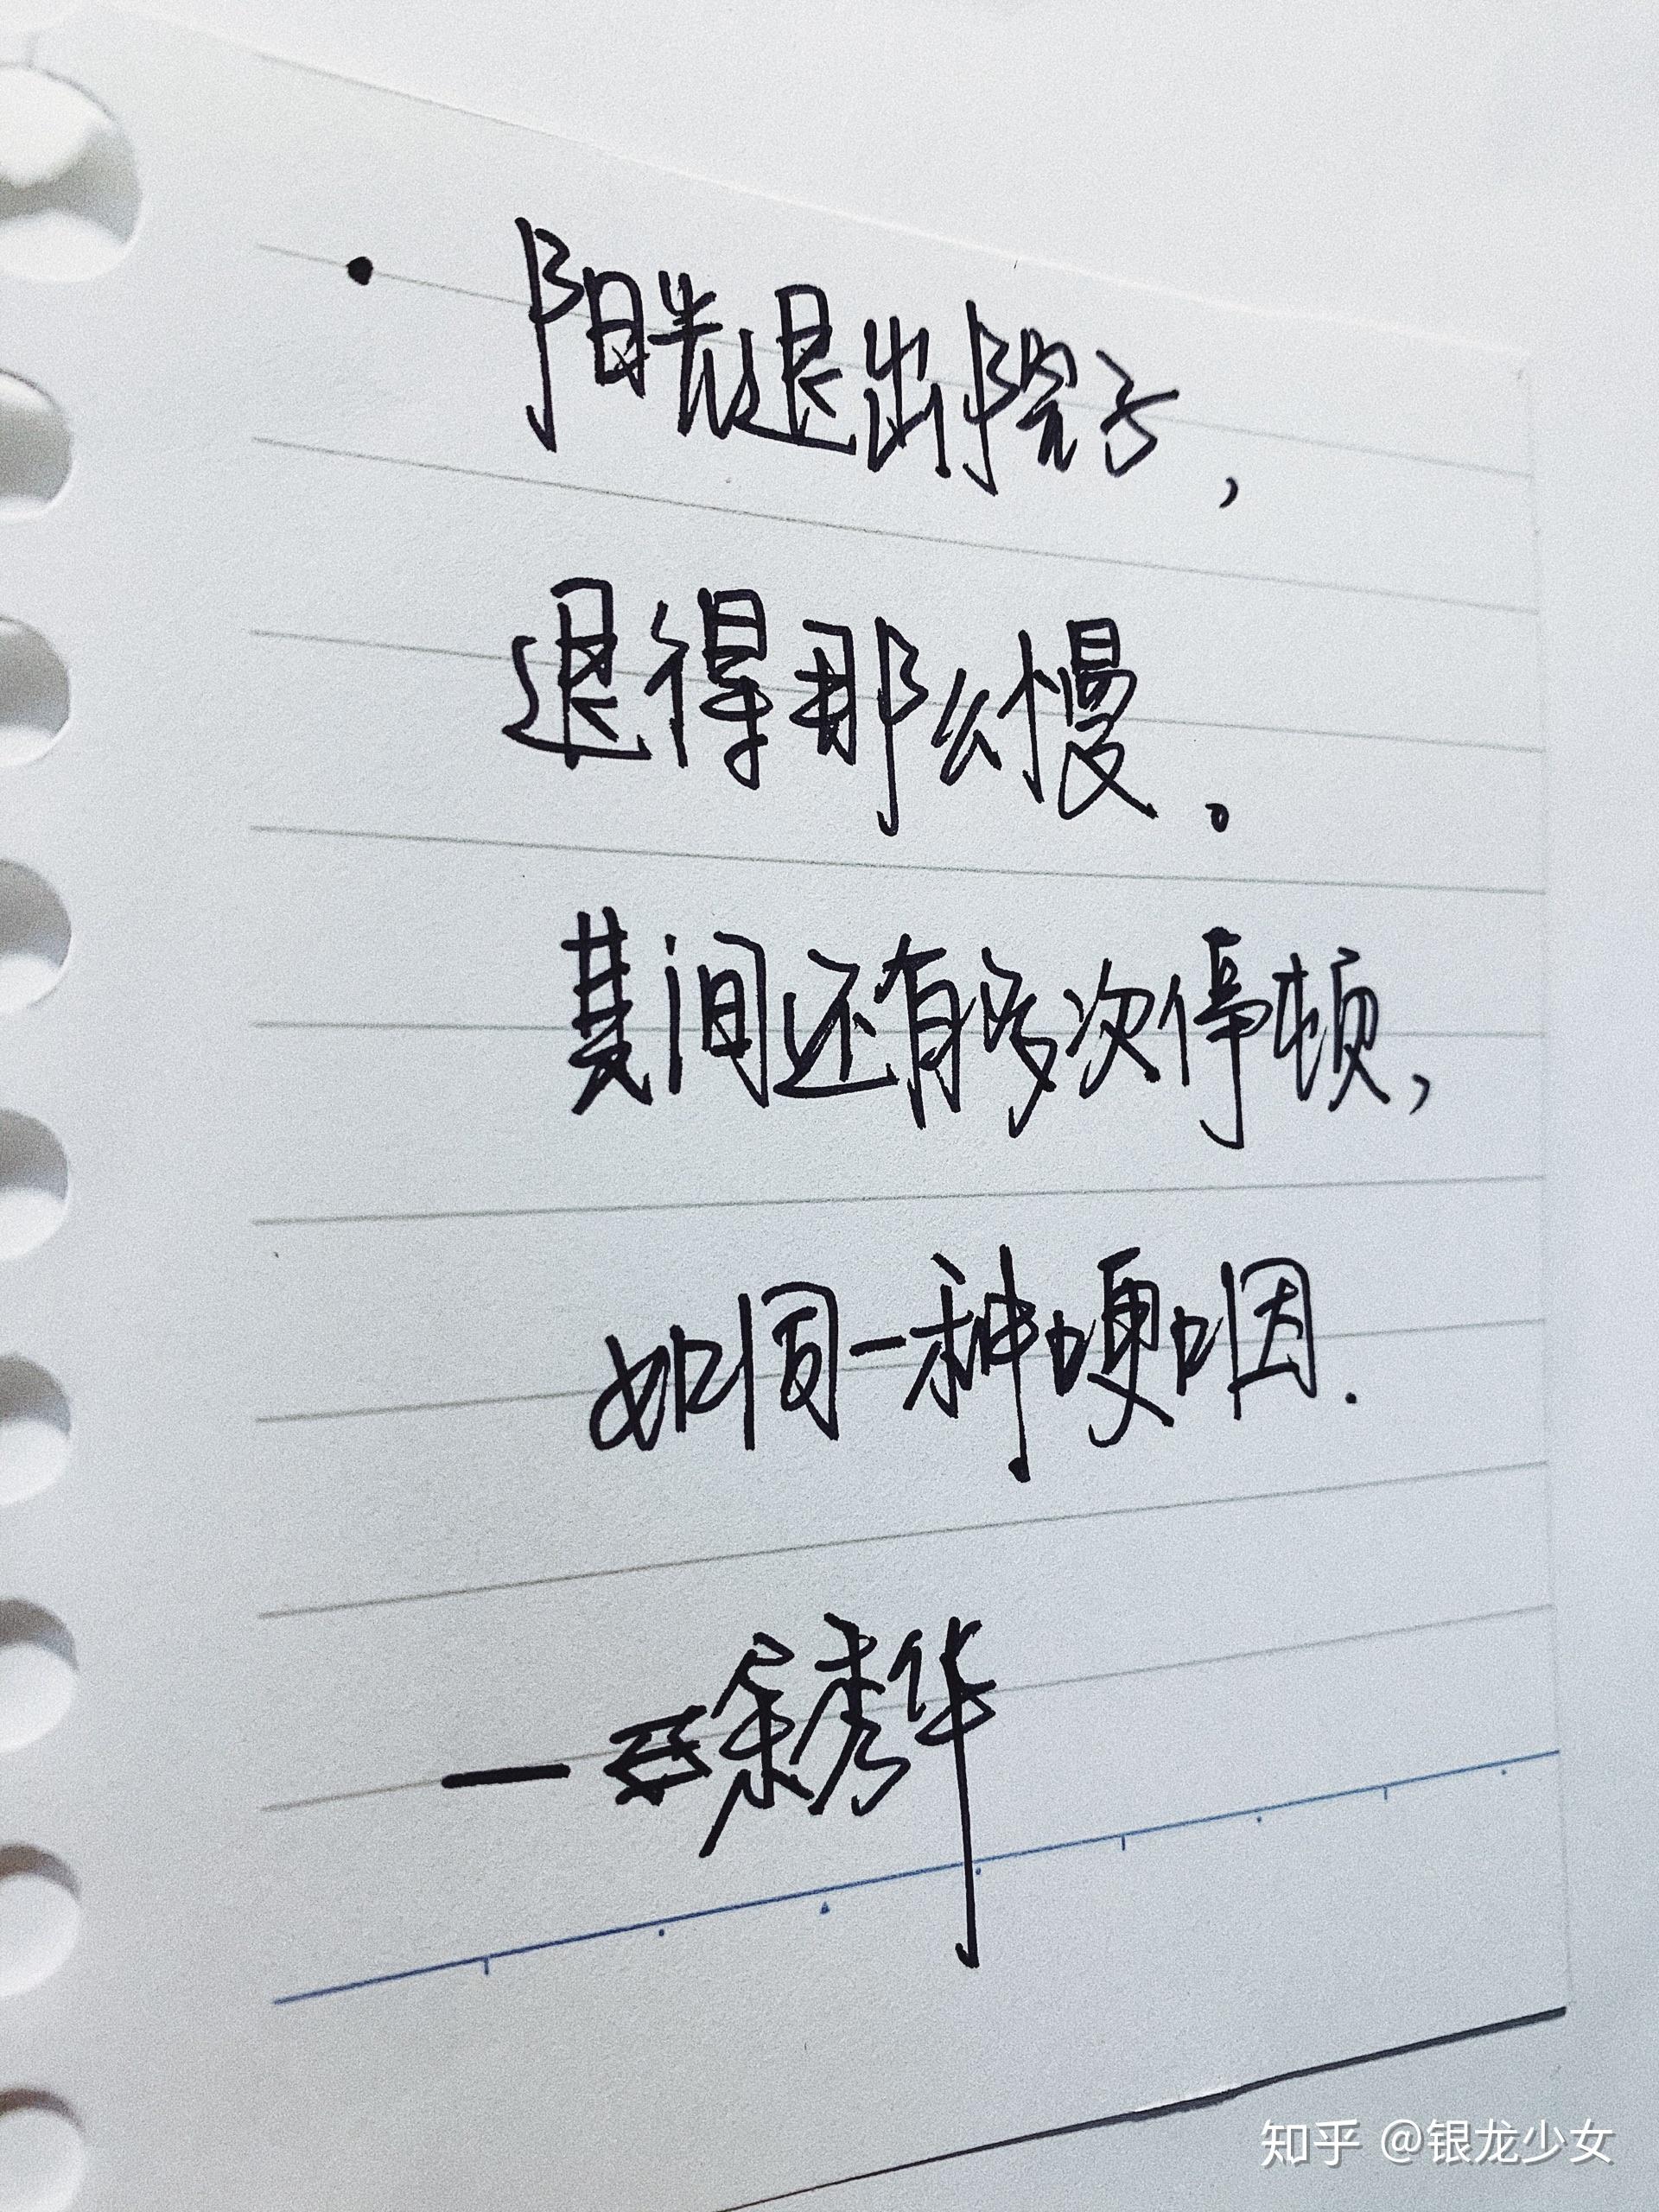 ·阳光退出院子，
退得那么慢。
其间还有多次停顿，
如同一种哽咽.
—余秀华
知乎 @银龙少女